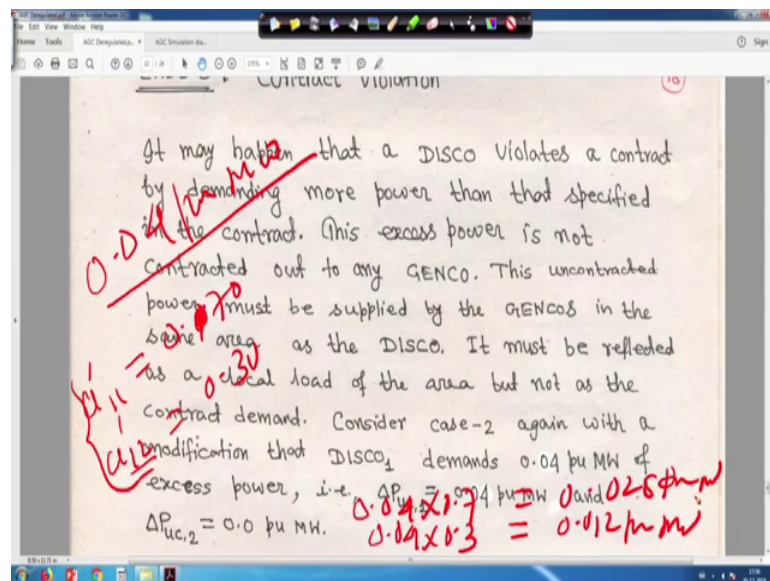 AGC Deregulated.pdf - Adobe Acrobat Reader DC
File Edit View Window Help
Home Tools AGC Deregulated.p... × AGC Simulation dia... Sign
22 / 24 175%
Contract Violation 18
It may happen that a DISCO violates a contract
by demanding more power than that specified
in the contract. This excess power is not
contracted out to any GENCO. This uncontracted
power must be supplied by the GENCOS in the
same area as the DISCO. It must be reflected
as a local load of the area but not as the
contract demand. Consider case-2 again with a
modification that DISCO₁ demands 0.04 pu MW of
excess power, i.e. ΔPuc,1 = 0.04 pu MW and
ΔPuc,2 = 0.0 pu MW.
0.04 pu MW
= 0.70
= 0.30
0.04 × 0.7 = 0.028 pu MW
0.04 × 0.3 = 0.012 pu MW
8.50 x 11.75 in
17:56